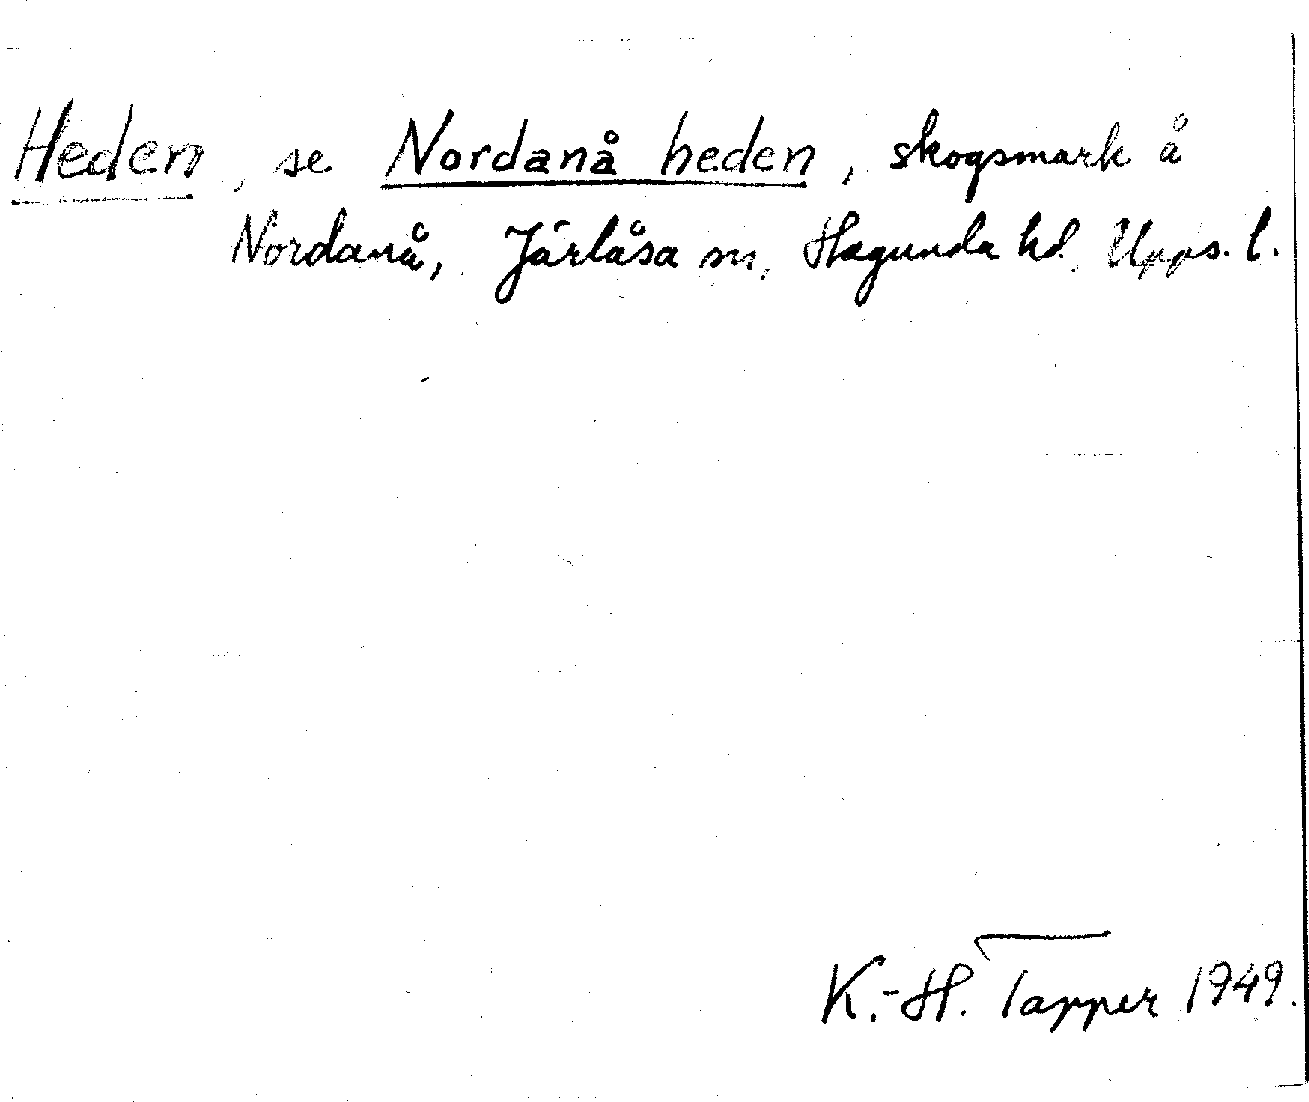 Heden, se Nordanå heden, skogsmark å
Nordanå, Järlåsa sn, Hagunda hd, Upps. l.
K.-H. Tapper 1949.